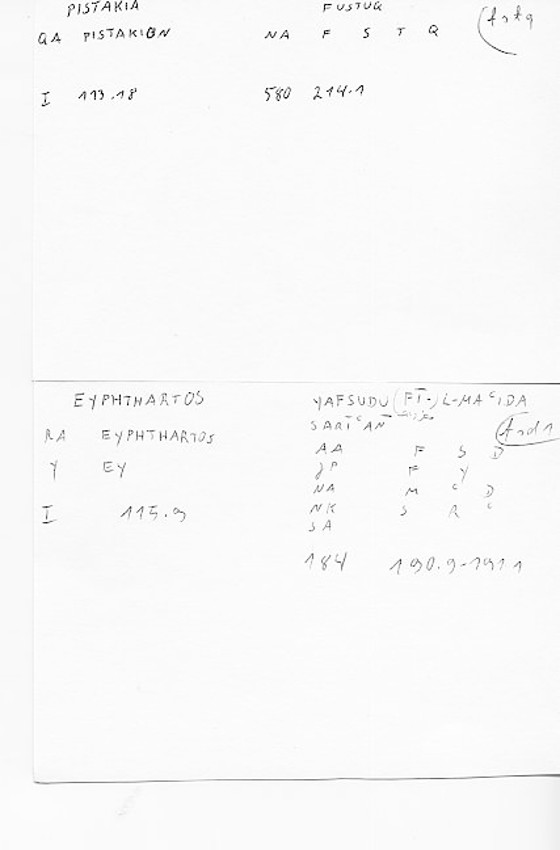 PISTAKIA FUSTUQ
QA PISTAKION NA F S T Q fstq
I 113.18 580 214.1
EYPHTHARTOS YAFSUDU (FĪ-) L-MAʿIDA
SARĪʿAN
RA EYPHTHARTOS AA F S D fsd1
Y EY JP F Y
NA M ʿ D
I 115.9 NK S R ʿ
SA
184 190.9-191 1